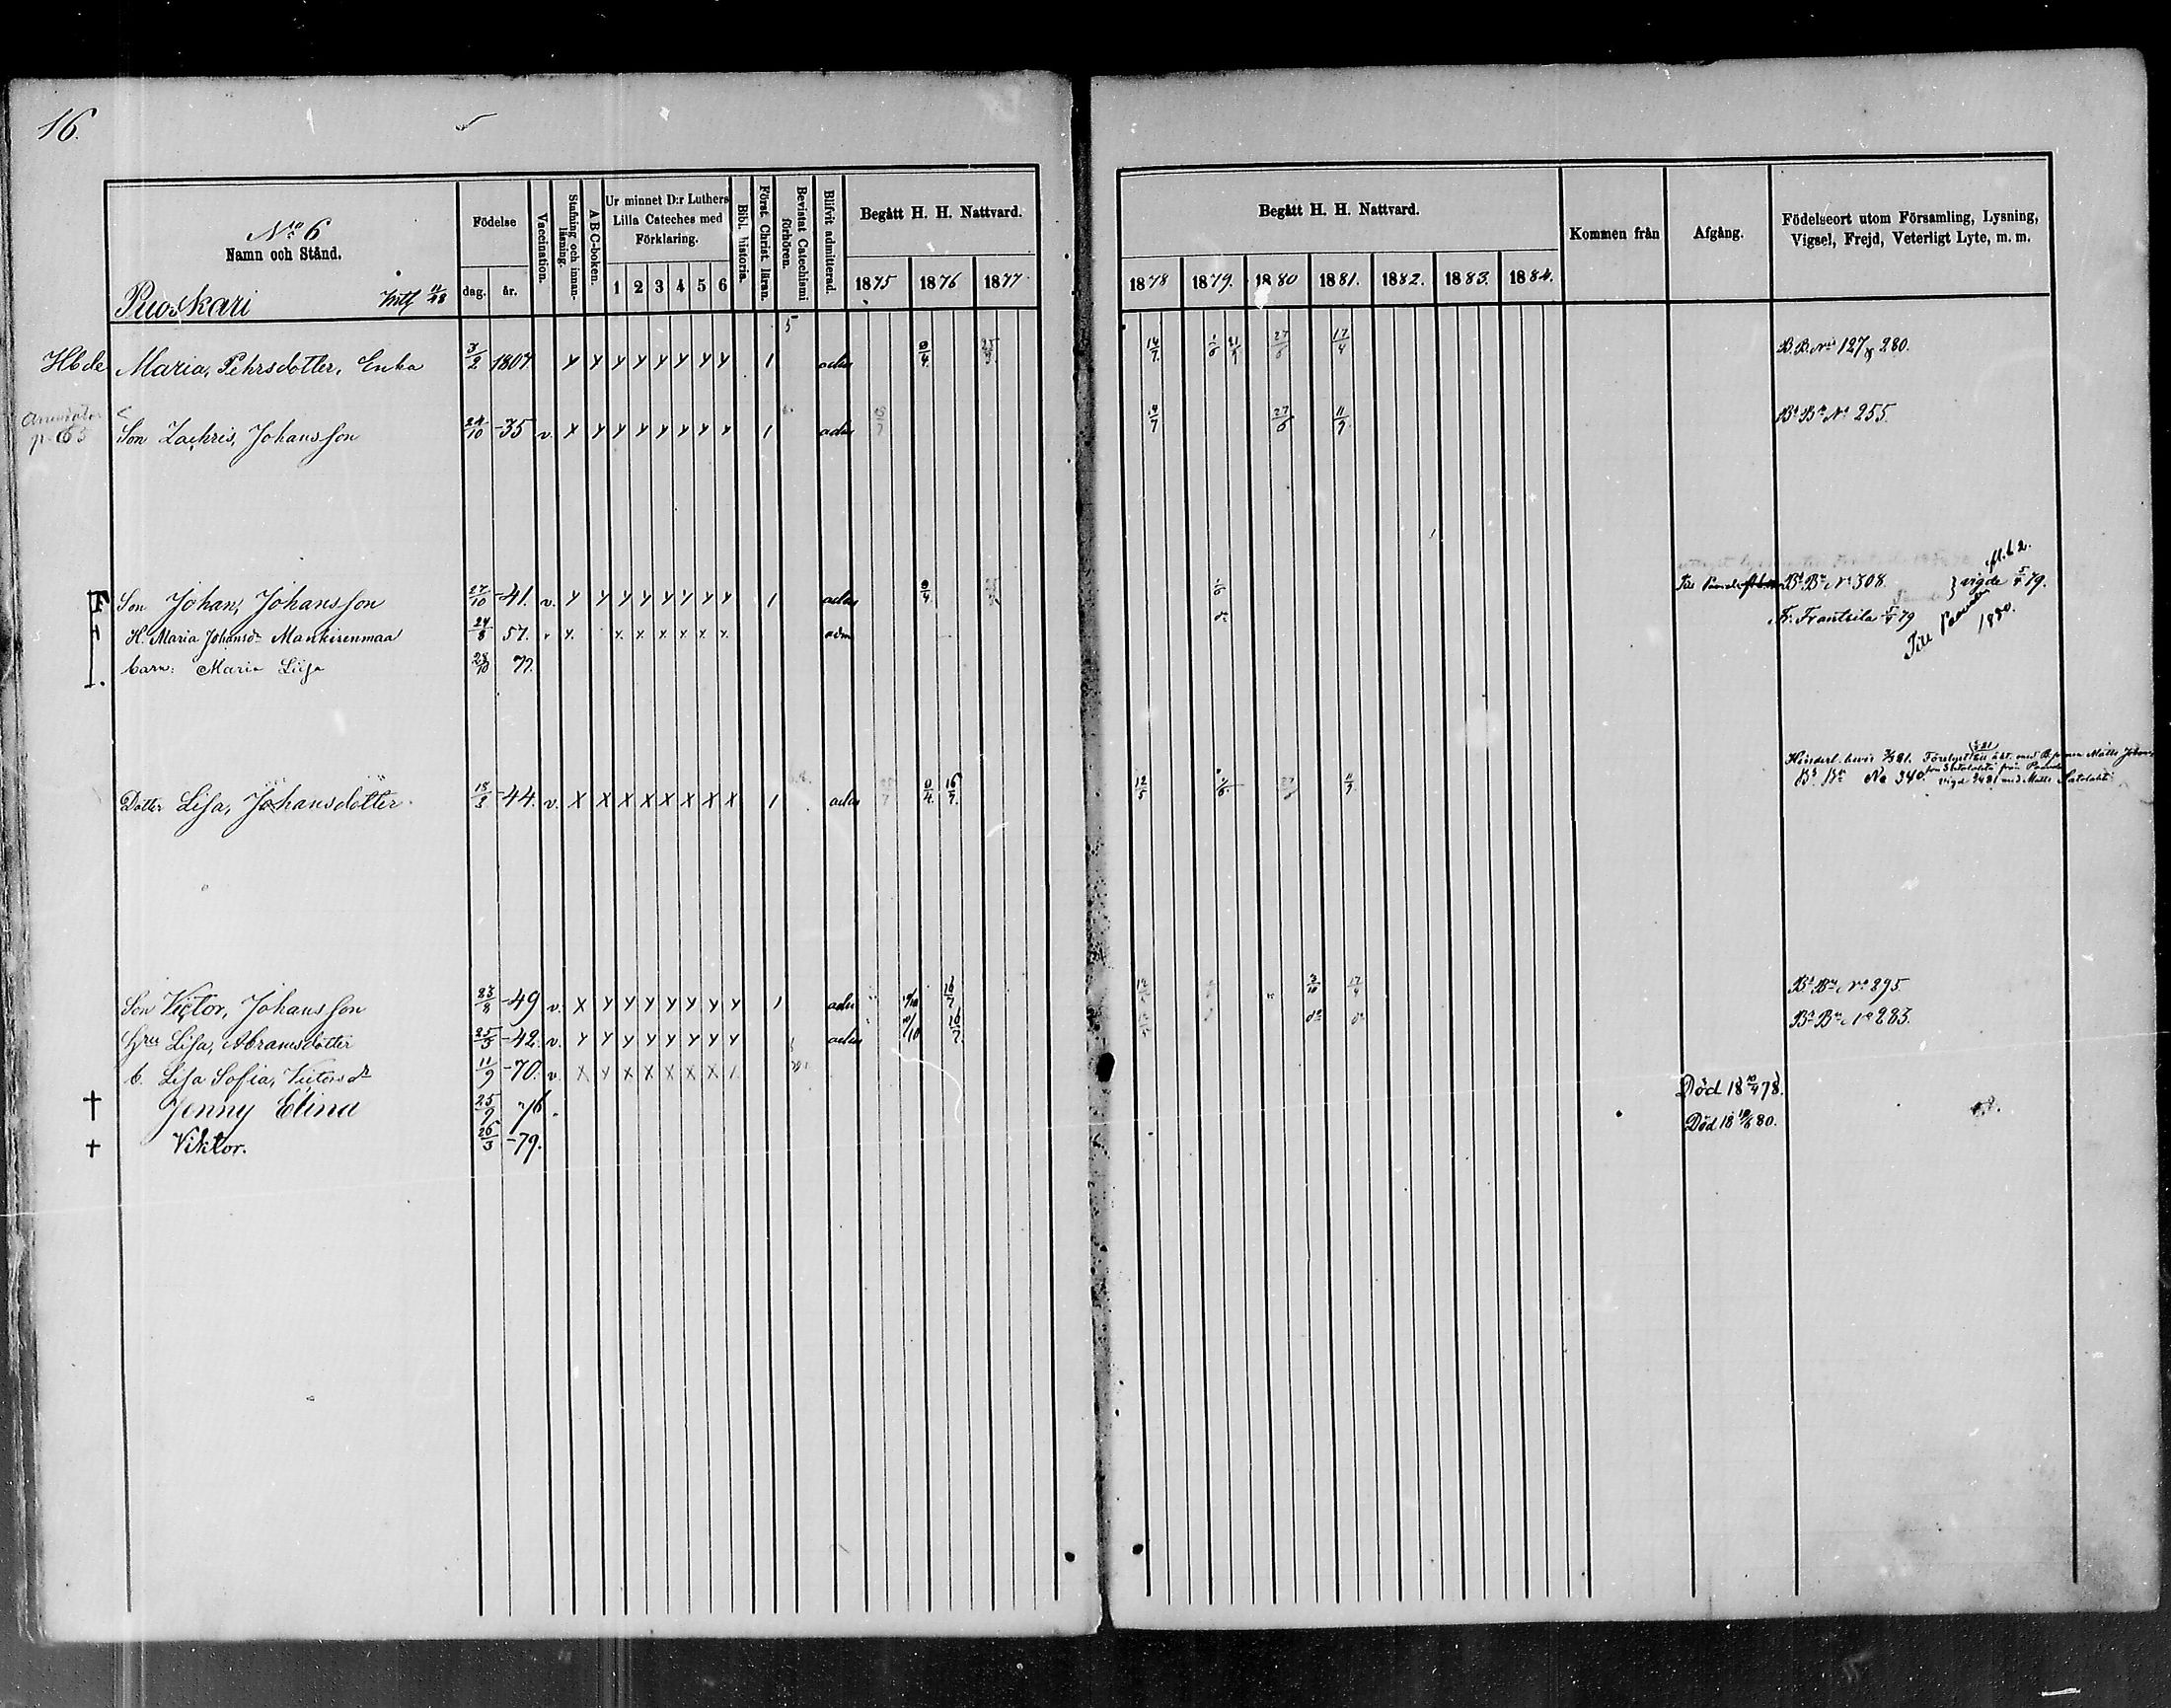 16.
No 6
Namn och Stånd.
Födelse
dag. år.
Vaccination.
Stafning och innan-läsning.
A B C-boken.
Ur minnet D:r Luthers Lilla Cateches med Förklaring.
1 2 3 4 5 6
Bibl. historia.
Först. Christ. läran.
Bevistat Catechismi förhören.
Blifvit admitterad.
Begått H. H. Nattvard.
1875 1876 1877
Begått H. H. Nattvard.
1878 1879. 1880 1881. 1882. 1883. 1884.
Kommen från
Afgång.
Födelseort utom Församling, Lysning, Vigsel, Frejd, Veterligt Lyte, m. m.
Puoskari
Hbde Maria, Pehrsdotter, Enka 3/2 1807 y y y y y y y y 1 5 adm 9/4 25/ 14/7 1/6 21/9 27/6 17/4 B. B. No 127 & 280.
p. 165
Son Zachris, Johansson 24/10 -35 v. x y y y y y y y 1 adm 14/7 27/6 11/9 Bd Bn No 255.
Son Johan, Johansson 27/10 -41. v. y y y y y y y y 1 adm 9/4 1/6 Bd Bn No 308. } vigde 5/ 79.
H. Maria Johansdr Mankisenmaa 24/8 57. x. x x x x x x adm do Fr. Frantsila 79
Till 1880.
barn: Maria Liisa 28/10 77.
Dotter Lisa, Johansdotter. 18/3 -44. v. x x x x x x x x 1 adm 9/4 16/7. 12/5 11/9. Bd Bn No 340.
Son Victor, Johansson 23/8 -49 v. x y y y y y y y 1 adm 16/7 3/10 17/4 Bd Bn No 895.
Hru Lisa, Abramsdotter 25/5 -42. v. y y y y y y y y adm /10 16/7. do do Bd Bn No 283.
b. Lisa Sofia, Victorsdr 11/9 -70. v. x y x x x x x
† Jenny Elina 25/9 76. Död 18 10/4 78.
† Viktor. 26/3 -79. Död 18 18/6 80.